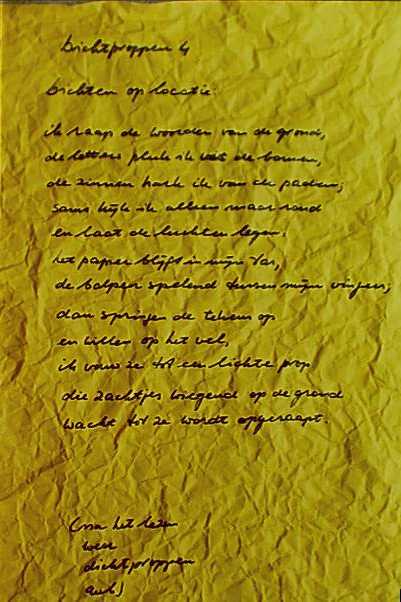 Dichtproppen 4
Dichten op locatie.
ik raap de woorden van de grond,
de letters pluk ik uit de bomen,
de zinnen hark ik van de paden;
soms kijk ik alleen maar rond
en laat de luchten legen.
het papier blijft in mijn jas,
de balpen spelend tussen mijn vingers;
dan springen de tekens op
en willen op het vel,
ik vouw ze tot een lichte prop
die zachtjes wiegend op de grond
wacht tot ze wordt opgeraapt.
(na het lezen
weer
dichtproppen
aub)